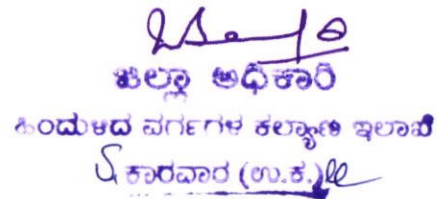 ಜಿಲ್ಲಾ ಅಧಿಕಾರಿ
ಹಿಂದುಳಿದ ವರ್ಗಗಳ ಕಲ್ಯಾಣ ಇಲಾಖೆ
ಕಾರವಾರ (ಉ.ಕ.)